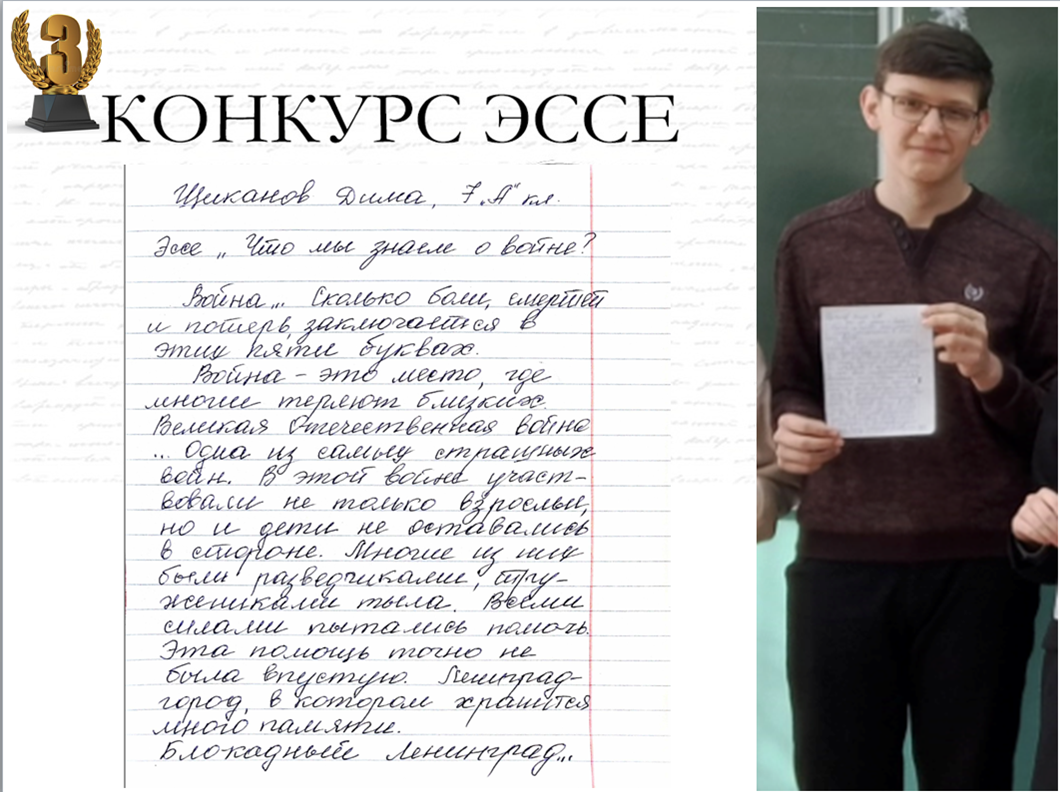 3
КОНКУРС ЭССЕ
Щиканов Дима, 7 „А" кл.
Эссе „ Что мы знаем о войне?
Война... Сколько боли, смертей
и потерь, заключается в
этих пяти буквах.
Война - это место, где
многие теряют близких.
Великая Отечественная война
... Одна из самых страшных
войн. В этой войне участ-
вовали не только взрослые,
но и дети не оставались
в стороне. Многие из них
были разведчиками, тру-
жениками тыла. Всеми
силами пытались помочь.
Эта помощь точно не
была впустую. Ленинград-
город, в котором хранится
много памяти.
Блокадный Ленинград...